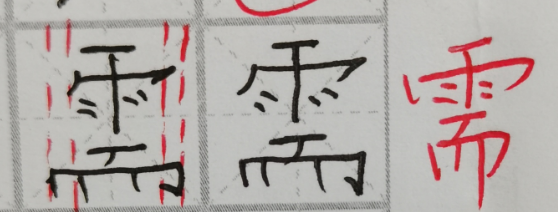 需 需 需